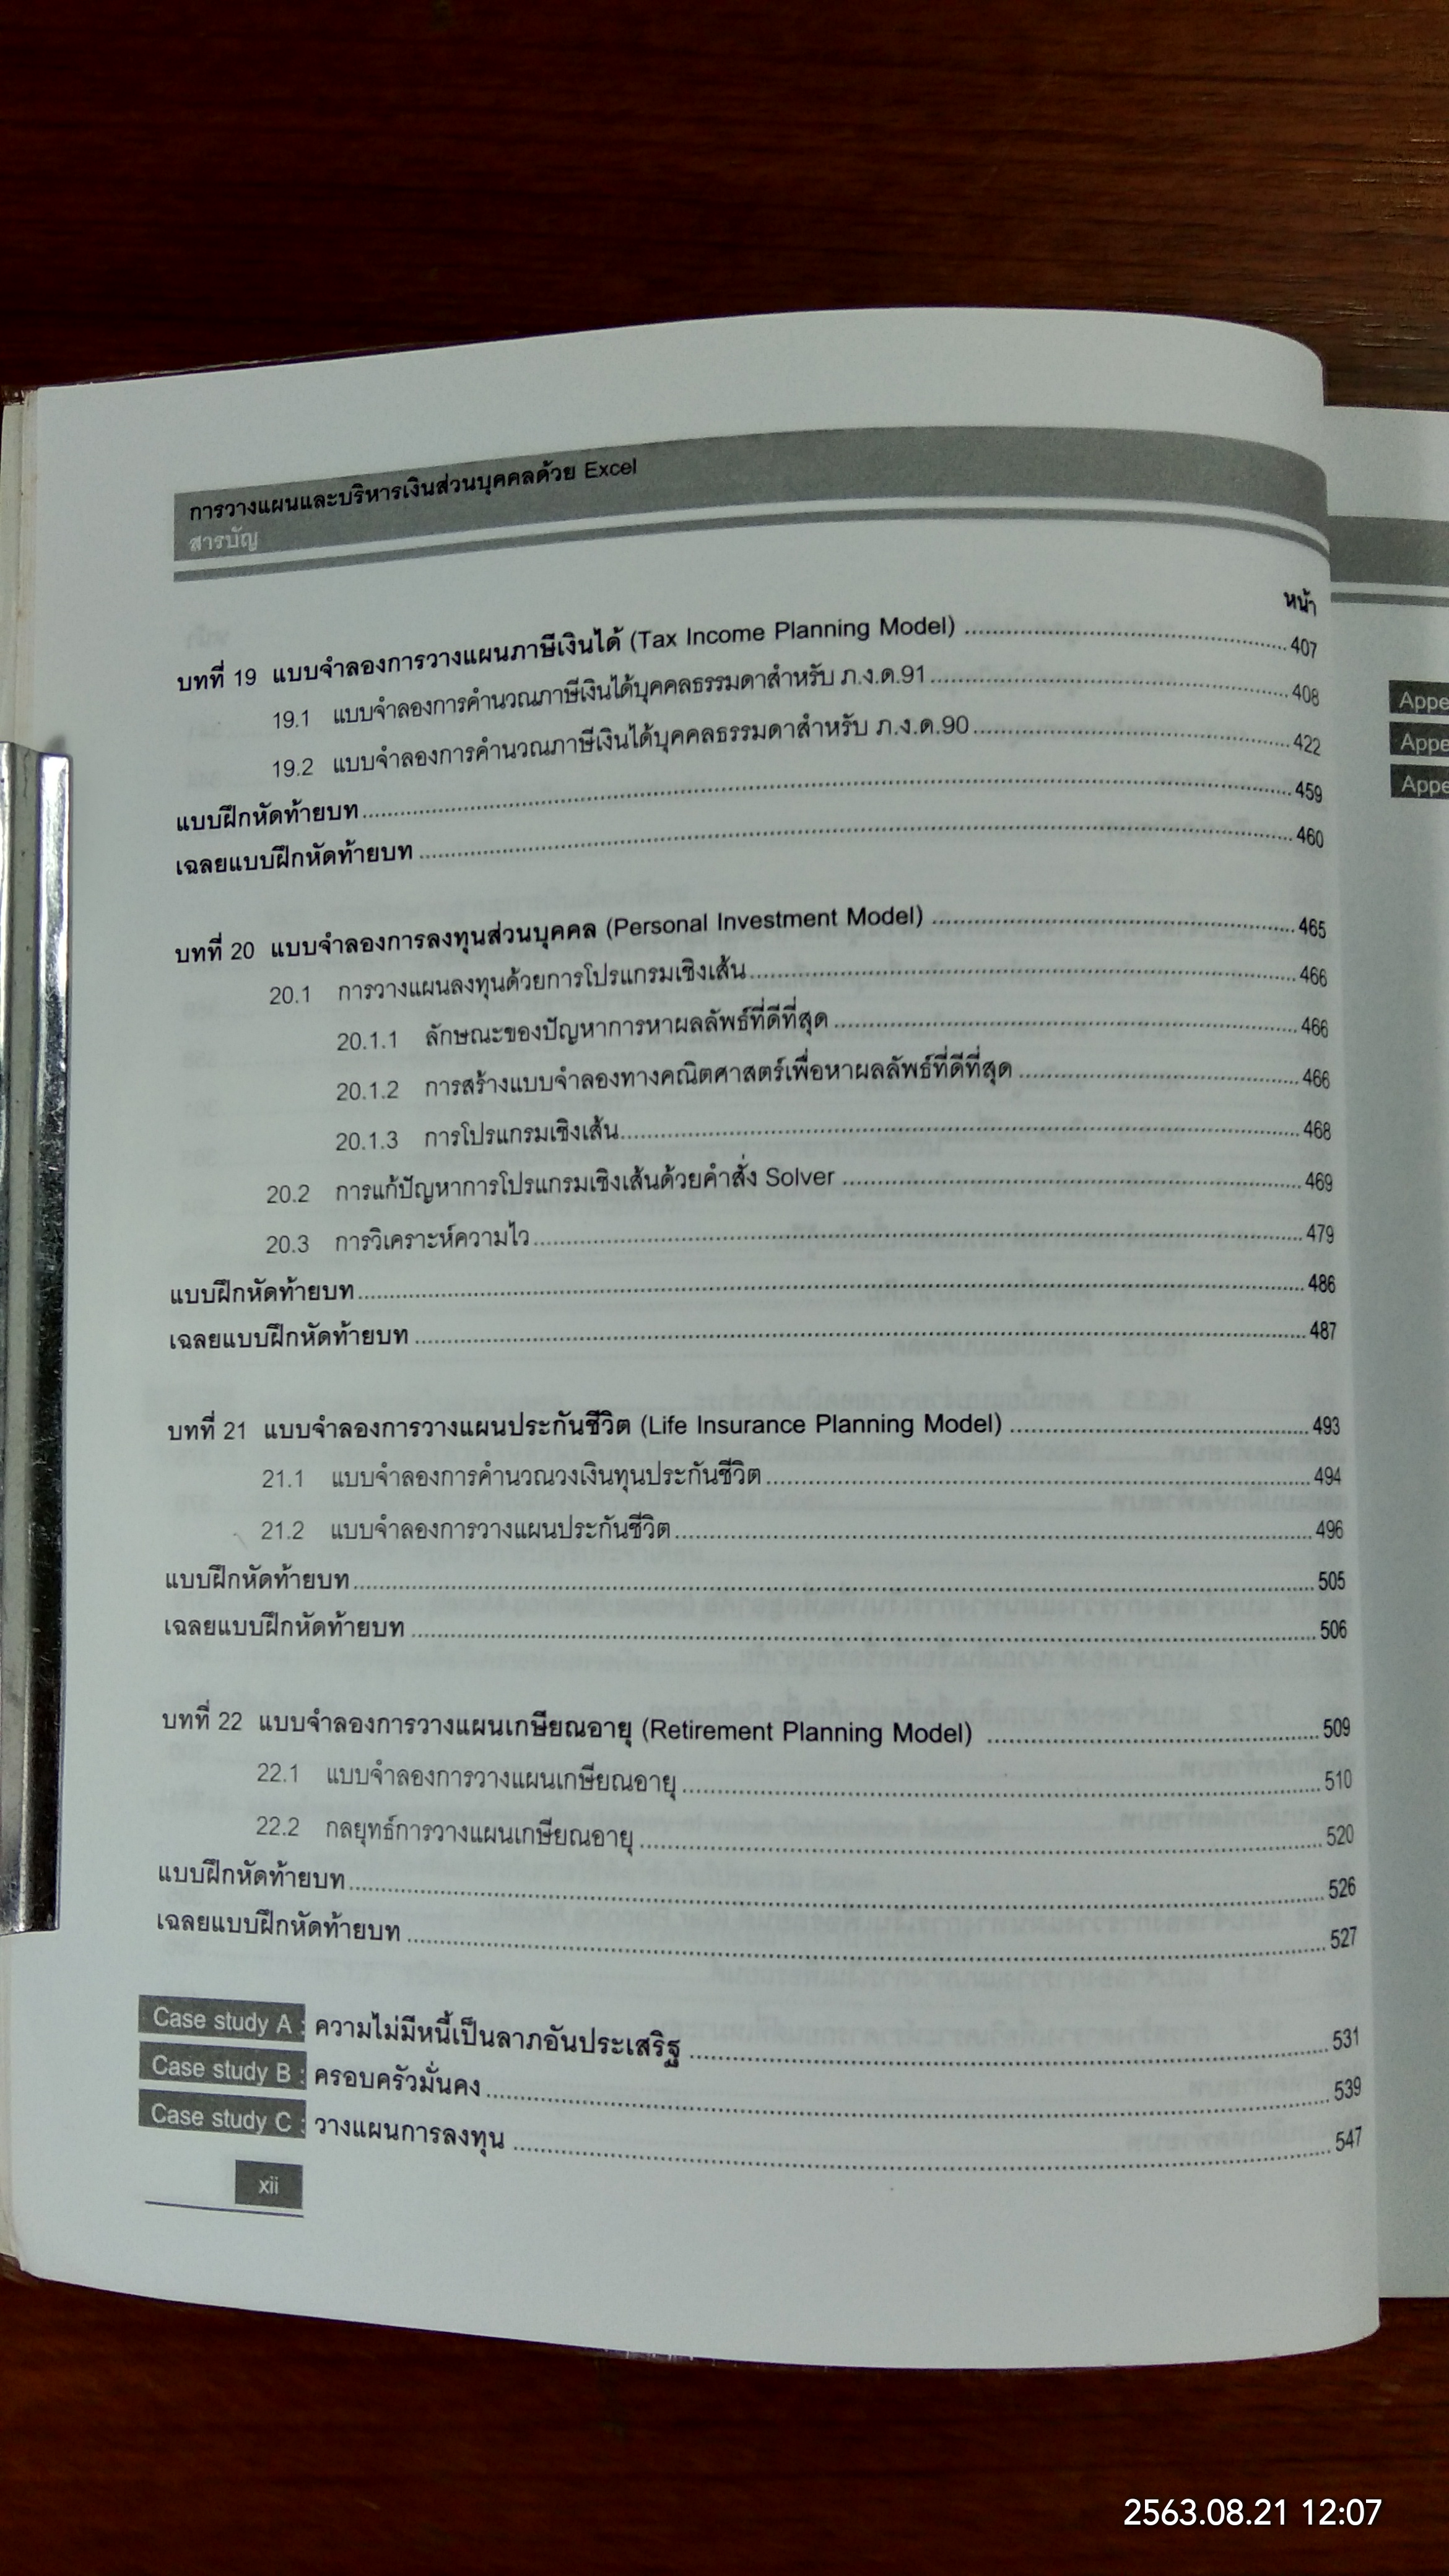 การวางแผนและบริหารเงินส่วนบุคคลด้วย Excel
สารบัญ
หน้า
บทที่ 19 แบบจำลองการวางแผนภาษีเงินได้ (Tax Income Planning Model) ........ 407
19.1 แบบจำลองการคำนวณภาษีเงินได้บุคคลธรรมดาสำหรับ ภ.ง.ด.91 ........ 408
19.2 แบบจำลองการคำนวณภาษีเงินได้บุคคลธรรมดาสำหรับ ภ.ง.ด.90 ........ 422
แบบฝึกหัดท้ายบท ........ 459
เฉลยแบบฝึกหัดท้ายบท ........ 460
บทที่ 20 แบบจำลองการลงทุนส่วนบุคคล (Personal Investment Model) ........ 465
20.1 การวางแผนลงทุนด้วยการโปรแกรมเชิงเส้น ........ 466
20.1.1 ลักษณะของปัญหาการหาผลลัพธ์ที่ดีที่สุด ........ 466
20.1.2 การสร้างแบบจำลองทางคณิตศาสตร์เพื่อหาผลลัพธ์ที่ดีที่สุด ........ 466
20.1.3 การโปรแกรมเชิงเส้น ........ 468
20.2 การแก้ปัญหาการโปรแกรมเชิงเส้นด้วยคำสั่ง Solver ........ 469
20.3 การวิเคราะห์ความไว ........ 479
แบบฝึกหัดท้ายบท ........ 486
เฉลยแบบฝึกหัดท้ายบท ........ 487
บทที่ 21 แบบจำลองการวางแผนประกันชีวิต (Life Insurance Planning Model) ........ 493
21.1 แบบจำลองการคำนวณวงเงินทุนประกันชีวิต ........ 494
21.2 แบบจำลองการวางแผนประกันชีวิต ........ 496
แบบฝึกหัดท้ายบท ........ 505
เฉลยแบบฝึกหัดท้ายบท ........ 506
บทที่ 22 แบบจำลองการวางแผนเกษียณอายุ (Retirement Planning Model) ........ 509
22.1 แบบจำลองการวางแผนเกษียณอายุ ........ 510
22.2 กลยุทธ์การวางแผนเกษียณอายุ ........ 520
แบบฝึกหัดท้ายบท ........ 526
เฉลยแบบฝึกหัดท้ายบท ........ 527
Case study A : ความไม่มีหนี้เป็นลาภอันประเสริฐ ........ 531
Case study B : ครอบครัวมั่นคง ........ 539
Case study C : วางแผนการลงทุน ........ 547
xii
Appe
Appe
Appe
2563.08.21 12:07